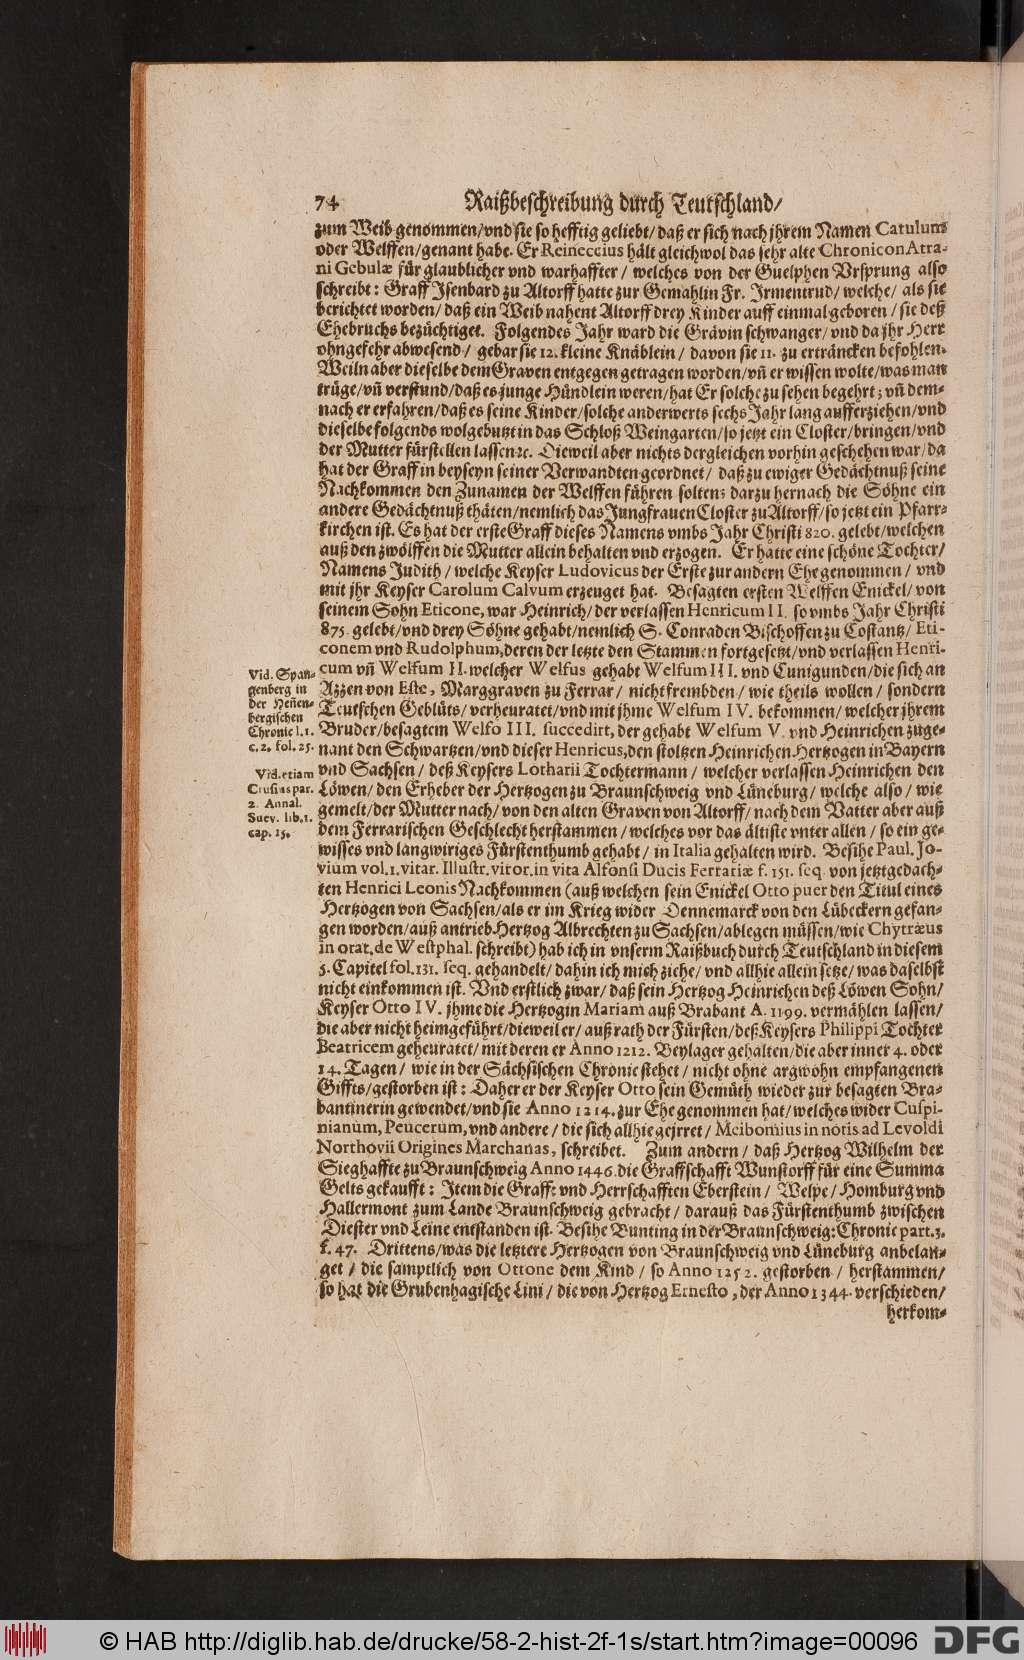 74 Raißbeschreibung durch Teutschland/
zum Weib genommen/vnd sie so hefftig geliebt/daß er sich nach jhrem Namen Catulum
oder Welffen/genant habe. Er Reineccius hält gleichwol das sehr alte Chronicon Atra-
ni Gebulæ für glaublicher vnd warhaffter/ welches von der Guelphen Vrsprung also
schreibt: Graff Isenbard zu Altorff hatte zur Gemahlin Fr. Irmentrud/ welche/ als sie
berichtet worden/ daß ein Weib nahent Altorff drey Kinder auff einmal geboren / sie deß
Ehebruchs bezüchtiget. Folgendes Jahr ward die Grävin schwanger/ vnd da jhr Herr
ohngefehr abwesend/ gebar sie 12. kleine Knäblein/ davon sie 11. zu ertráncken befohlen.
Weiln aber dieselbe dem Graven entgegen getragen worden/vñ er wissen wolte/was man
trüge/vñ verstund/daß es junge Hündlein weren/hat Er solche zu sehen begehrt; vñ dem-
nach er erfahren/daß es seine Kinder/solche anderwerts sechs Jahr lang aufferziehen/vnd
dieselbe folgends wolgebutzt in das Schloß Weingarten/so jetzt ein Closter/bringen/vnd
der Mutter fürstellen lassen ꝛc. Dieweil aber nichts dergleichen vorhin geschehen war/ da
hat der Graff in beyseyn seiner Verwandten geordnet/ daß zu ewiger Gedächtnuß seine
Nachkommen den Zunamen der Welffen führen solten; darzu hernach die Söhne ein
andere Gedächtnuß thäten/nemlich das Jungfrauen Closter zu Altorff/so jetzt ein Pfarr-
kirchen ist. Es hat der erste Graff dieses Namens vmbs Jahr Christi 820. gelebt/welchen
auß den zwölffen die Mutter allein behalten vnd erzogen. Er hatte eine schöne Tochter/
Namens Judith/ welche Keyser Ludovicus der Erste zur andern Ehe genommen / vnd
mit jhr Keyser Carolum Calvum erzeuget hat. Besagten ersten Welffen Enickel/ von
seinem Sohn Eticone, war Heinrich/ der verlassen Henricum II. so vmbs Jahr Christi
875. gelebt/vnd drey Söhne gehabt/nemlich S. Conraden Bischoffen zu Costantz/ Eti-
conem vnd Rudolphum, deren der letzte den Stammen fortgesetzt/vnd verlassen Henri-
cum vñ Welfum II. welcher Welfus gehabt Welfum III. vnd Cunigunden/die sich an
Azzen von Este, Marggraven zu Ferrar/ nicht frembden/ wie theils wollen/ sondern
Teutschen Geblüts/ verheuratet/vnd mit jhme Welfum IV. bekommen/ welcher jhrem
Bruder/besagtem Welfo III. succedirt, der gehabt Welfum V. vnd Heinrichen zuge-
nant den Schwartzen/vnd dieser Henricus, den stoltzen Heinrichen Hertzogen in Bayern
vnd Sachsen/ deß Keysers Lotharii Tochtermann/ welcher verlassen Heinrichen den
Löwen/ den Erheber der Hertzogen zu Braunschweig vnd Lüneburg/ welche also / wie
gemelt/der Mutter nach/ von den alten Graven von Altorff/ nach dem Vatter aber auß
dem Ferrarischen Geschlecht herstammen/ welches vor das ältiste vnter allen / so ein ge-
wisses vnd langwiriges Fürstenthumb gehabt/ in Italia gehalten wird. Besihe Paul. Jo-
vium vol. 1. vitar. Illustr. viror. in vita Alfonsi Ducis Ferrariæ f. 151. seq. von jetztgedach-
ten Henrici Leonis Nachkommen (auß welchen sein Enickel Otto puer den Titul eines
Hertzogen von Sachsen/als er im Krieg wider Dennemarck von den Lübeckern gefan-
gen worden/auß antrieb Hertzog Albrechten zu Sachsen/ablegen müssen/wie Chytræus
in orat. de Westphal. schreibt) hab ich in vnserm Raißbuch durch Teutschland in diesem
5. Capitel fol. 131. seq. gehandelt/ dahin ich mich ziehe/ vnd allhie allein setze/ was daselbst
nicht einkommen ist. Vnd erstlich zwar/ daß sein Hertzog Heinrichen deß Löwen Sohn/
Keyser Otto IV. jhme die Hertzogin Mariam auß Brabant A. 1199. vermählen lassen/
die aber nicht heimgeführt/dieweil er/ auß rath der Fürsten/deß Keysers Philippi Tochter
Beatricem geheuratet/ mit deren er Anno 1212. Beylager gehalten/die aber inner 4. oder
14. Tagen/ wie in der Sächsischen Chronic stehet/ nicht ohne argwohn empfangenen
Giffts/gestorben ist: Daher er der Keyser Otto sein Gemüth wieder zur besagten Bra-
bantinerin gewendet/vnd sie Anno 1214. zur Ehe genommen hat/welches wider Cuspi-
nianum, Peucerum, vnd andere / die sich allhie gejrret/ Meibomius in notis ad Levoldi
Northovii Origines Marchanas, schreibet. Zum andern/ daß Hertzog Wilhelm der
Sieghaffte zu Braunschweig Anno 1446. die Graffschafft Wunstorff für eine Summa
Gelts gekaufft: Item die Graff: vnd Herrschafften Eberstein/ Welpe/ Homburg vnd
Hallermont zum Lande Braunschweig gebracht/ darauß das Fürstenthumb zwischen
Diester vnd Leine entstanden ist. Besihe Bunting in der Braunschweig: Chronic part. 3.
f. 47. Drittens/was die letztere Hertzogen von Braunschweig vnd Lüneburg anbelan-
get / die samptlich von Ottone dem Kind / so Anno 1252. gestorben / herstammen/
so hat die Grubenhagische Lini / die von Hertzog Ernesto, der Anno 1344. verschieden/
herkom-
Vid. Span-
genberg in
der Heñen-
bergischen
Chronic l. 1.
c. 2. fol. 25.
Vid. etiam
Crusius par.
2. Annal.
Suev. lib. 1.
cap. 15.
© HAB http://diglib.hab.de/drucke/58-2-hist-2f-1s/start.htm?image=00096
DFG